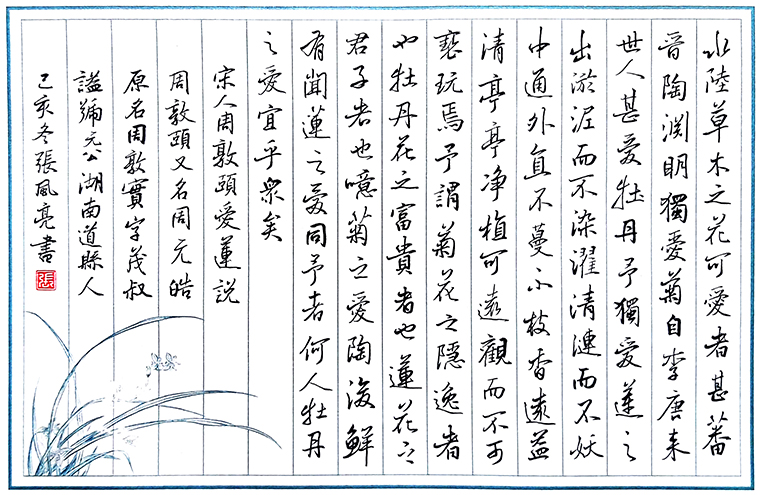 水陸草木之花可愛者甚蕃
晉陶淵明獨愛菊自李唐来
世人甚爱牡丹予獨爱蓮之
出淤泥而不染濯清漣而不妖
中通外直不蔓不枝香遠益
清亭亭净植可遠觀而不可
亵玩焉予謂菊花之隱逸者
也牡丹花之富貴者也蓮花之
君子者也噫菊之愛陶後鮮
有聞蓮之爱同予者何人牡丹
之爱宜乎衆矣
宋人周敦頤愛蓮説
周敦頤又名周元皓
原名周敦實字茂叔
謚號元公湖南道縣人
己亥冬張風亮書
張